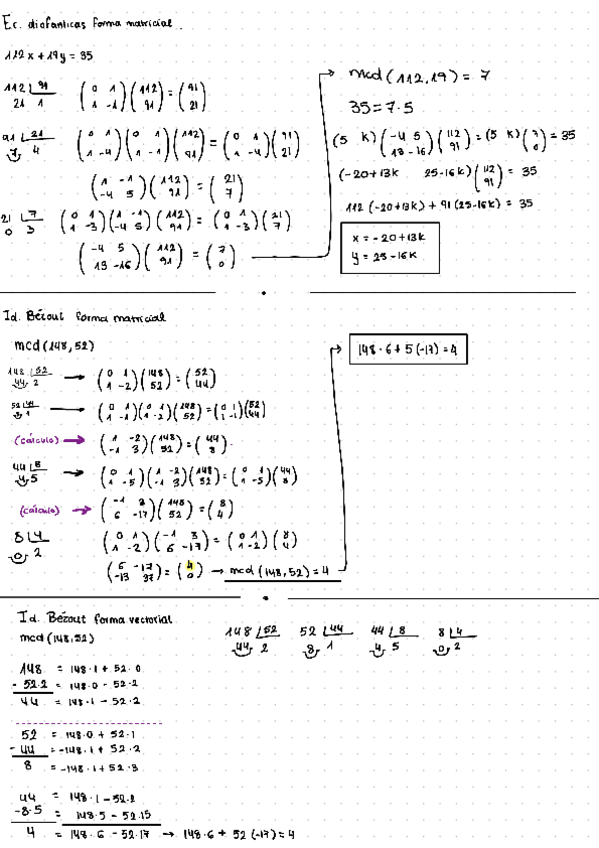 Ec. diofanticas forma matricial
112x + 19y = 35
112 | 91
21 1
(0 1; 1 -1)(112; 91) = (91; 21)
91 | 21
7 4
(0 1; 1 -4)(0 1; 1 -1)(112; 91) = (0 1; 1 -4)(91; 21)
(1 -1; -4 5)(112; 91) = (21; 7)
21 | 7
0 3
(0 1; 1 -3)(1 -1; -4 5)(112; 91) = (0 1; 1 -3)(21; 7)
(-4 5; 13 -16)(112; 91) = (7; 0)
mcd(112,19) = 7
35 = 7·5
(5 k)(-4 5; 13 -16)(112; 91) = (5 k)(7; 0) = 35
(-20+13k 25-16k)(112; 91) = 35
112(-20+13k) + 91(25-16k) = 35
x = -20+13k
y = 25-16k
Id. Bézout forma matricial
mcd(148,52)
148 | 52
44 2
→ (0 1; 1 -2)(148; 52) = (52; 44)
52 | 44
8 1
→ (0 1; 1 -1)(0 1; 1 -2)(148; 52) = (0 1; 1 -1)(52; 44)
(cálculo) → (1 -2; -1 3)(148; 52) = (44; 8)
44 | 8
4 5
→ (0 1; 1 -5)(1 -2; -1 3)(148; 52) = (0 1; 1 -5)(44; 8)
(cálculo) → (-1 3; 6 -17)(148; 52) = (8; 4)
8 | 4
0 2
(0 1; 1 -2)(-1 3; 6 -17) = (0 1; 1 -2)(8; 4)
(6 -17; -13 37) = (4; 0) → mcd(148,52) = 4
148·6 + 5(-17) = 4
Id. Bézout forma vectorial
mcd(148,52)
148 | 52 52 | 44 44 | 8 8 | 4
44 2 8 1 4 5 0 2
148 = 148·1 + 52·0
- 52·2 = 148·0 - 52·2
44 = 148·1 - 52·2
52 = 148·0 + 52·1
- 44 = -148·1 + 52·2
8 = -148·1 + 52·3
44 = 148·1 - 52·2
-8·5 = 148·5 - 52·15
4 = 148·6 - 52·17 → 148·6 + 52(-17) = 4